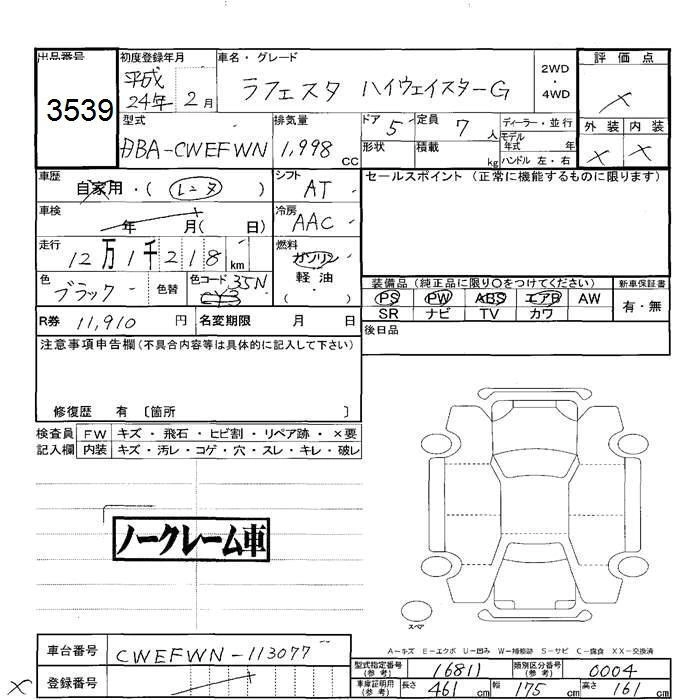 出品番号 初度登録年月 車名・グレード 評価点
3539 平成24年 2月 ラフェスタ ハイウェイスターG 2WD・4WD ×
型式 排気量 ドア 5 定員 7人 ディーラー・並行 外装 内装
DBA-CWEFWN 1,998cc 形状 積載 kg モデル年式 年 ハンドル 左・右 × ×
車歴 自家用・(レンタ) シフト AT セールスポイント(正常に機能するものに限ります)
車検 年 月( 日) 冷房 AAC
走行 12万1千218km 燃料 ガソリン 軽油 ( )
色 ブラック 色替 色コード 35N CY3 装備品(純正品に限り○をつけてください) 新車保証書
PS PW ABS エアB AW 有・無
SR ナビ TV カワ
R券 11,910円 名変期限 月 日 後日品
注意事項申告欄(不具合内容等は具体的に記入して下さい)
修復歴 有〔箇所 〕
検査員 FW キズ・飛石・ヒビ割・リペア跡・×要
記入欄 内装 キズ・汚レ・コゲ・穴・スレ・キレ・破レ
ノークレーム車
スペア
A-キズ E-エクボ U-凹み W-補修跡 S-サビ C-腐食 XX-交換済
車台番号 CWEFWN-113077 型式指定番号(参考) 16811 類別区分番号(参考) 0004
× 登録番号 車庫証明用(参考) 長さ 461cm 幅 175cm 高さ 161cm